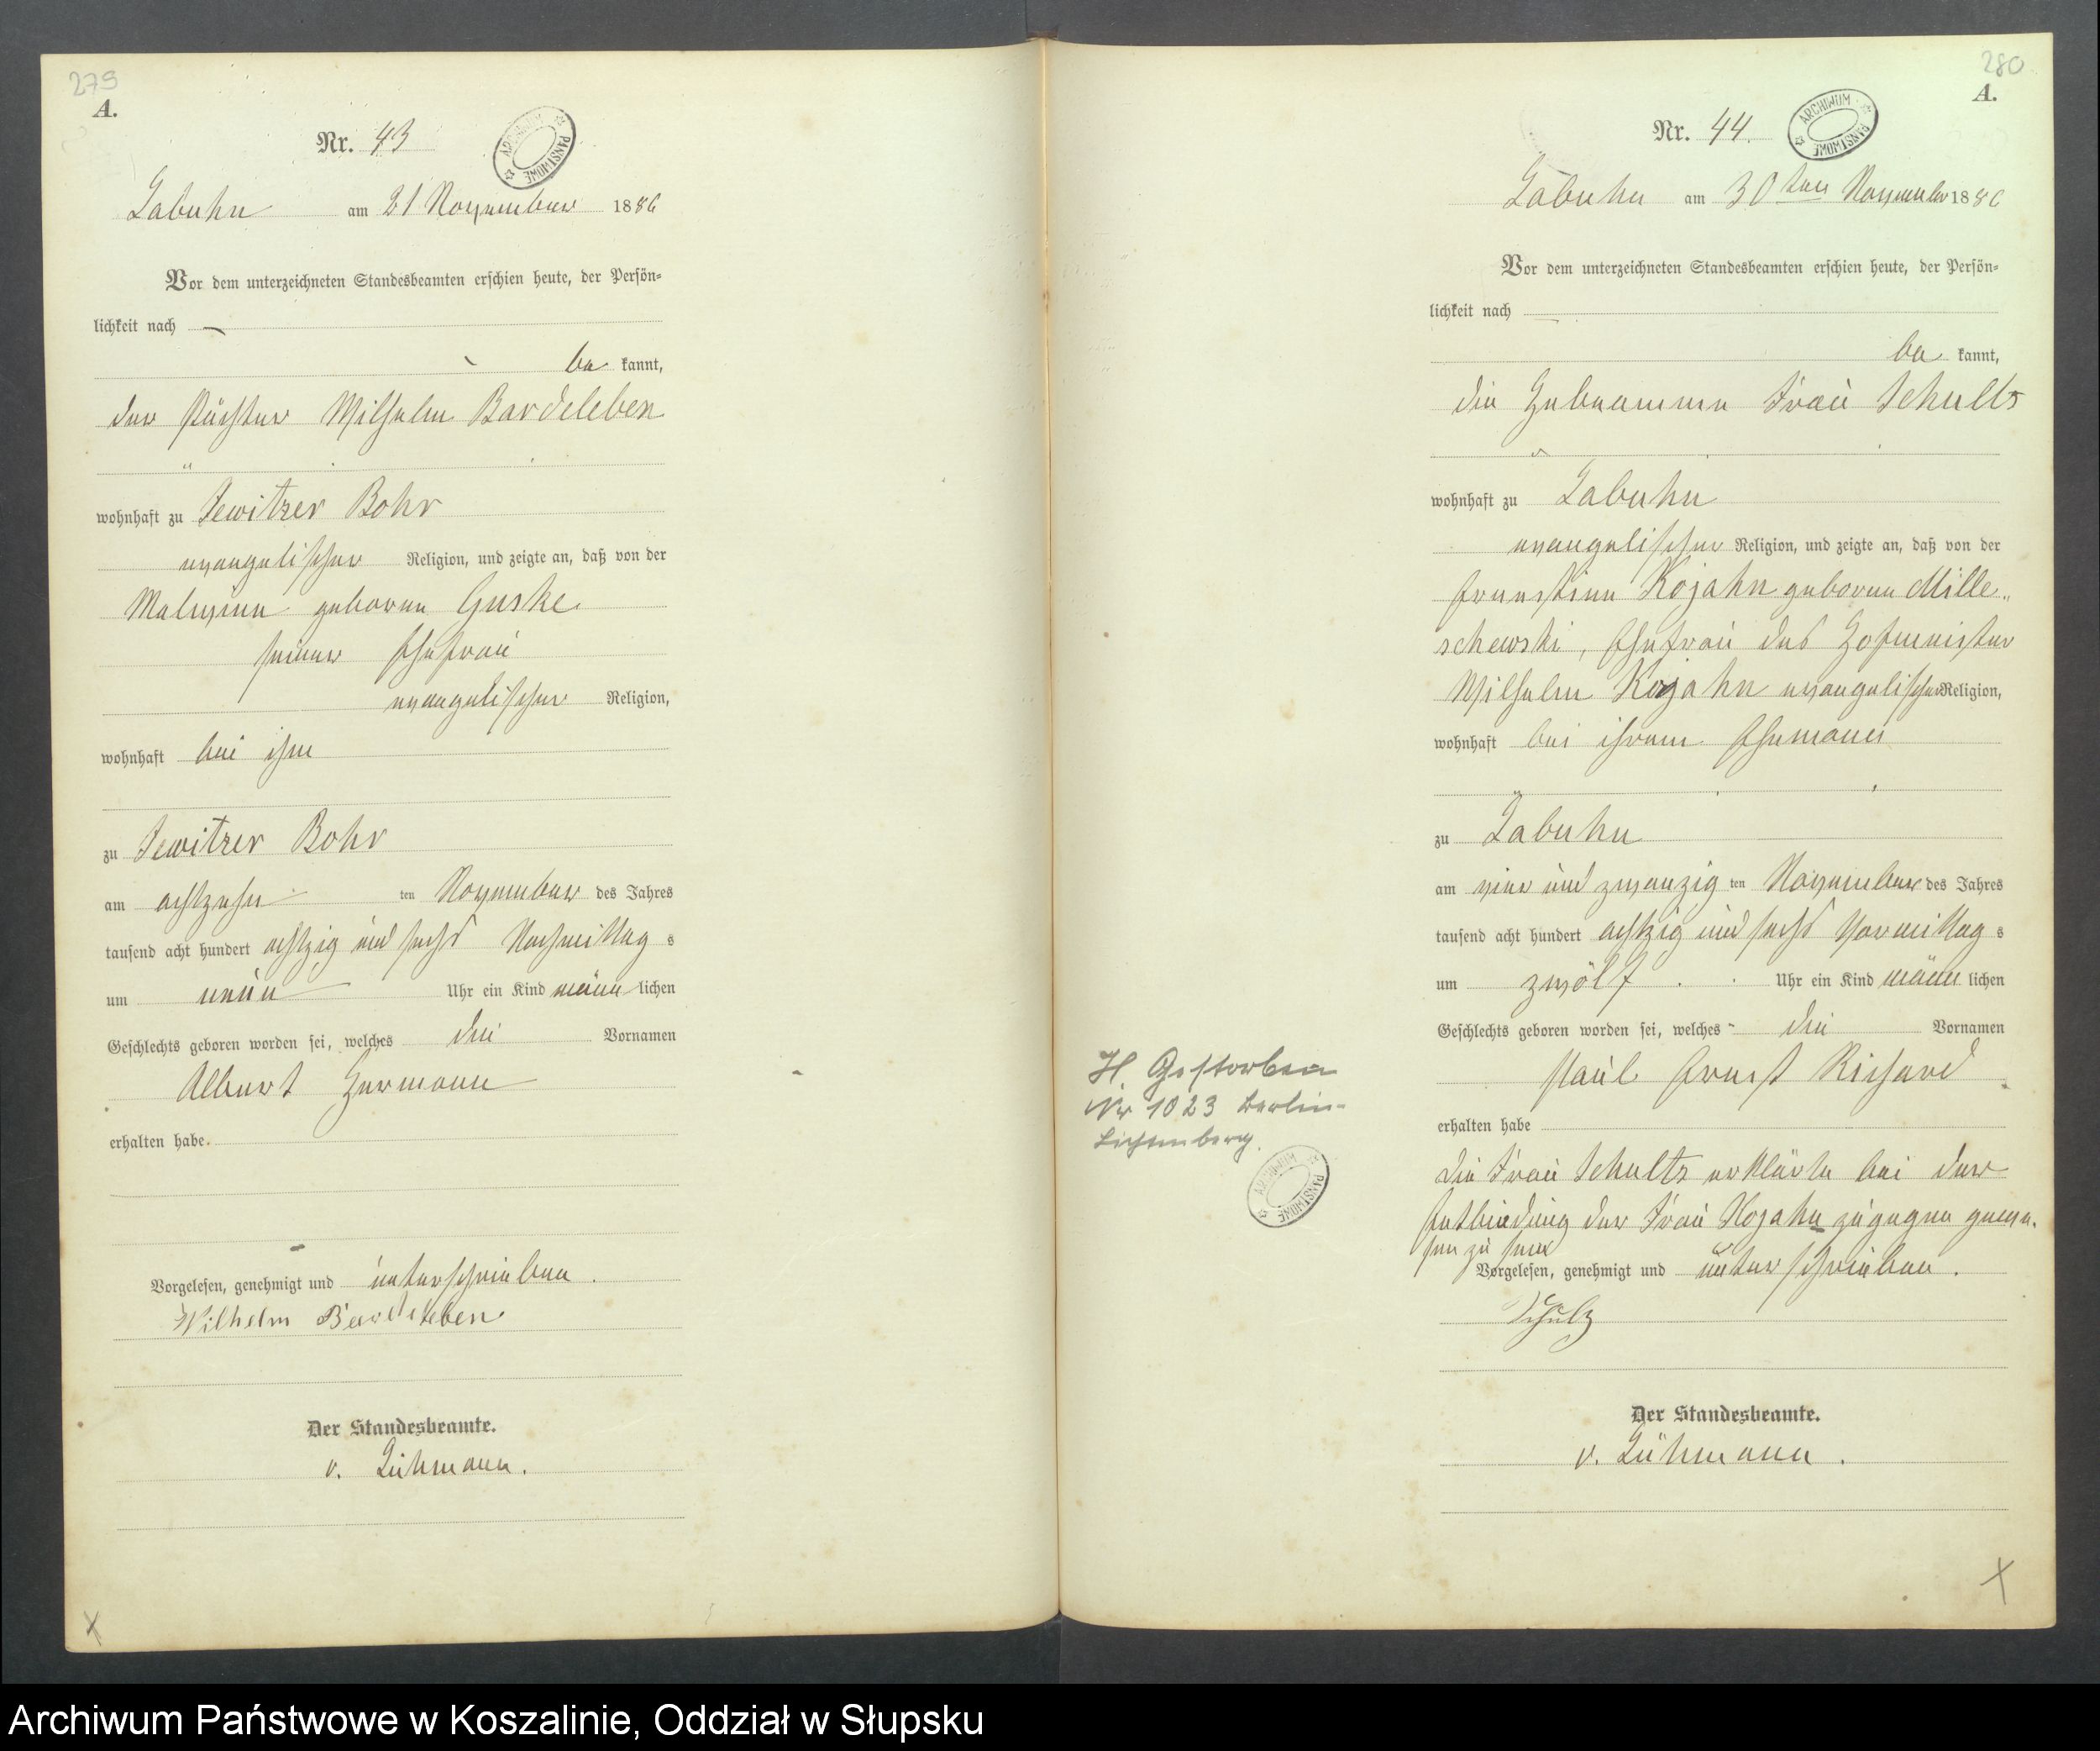 279
A.
Nr. 43
ARCHIWUM PAŃSTWOWE
Labuhn am 21 November 1886
Vor dem unterzeichneten Standesbeamten erschien heute, der Persön-
lichkeit nach
be kannt,
der Pächter Wilhelm Bardeleben
wohnhaft zu Jewitzer Bohr
evangelischer Religion, und zeigte an, daß von der
Malwine geborene Guske
seiner Ehefrau
evangelischer Religion,
wohnhaft bei ihm
zu Jewitzer Bohr
am achtzehn ten November des Jahres
tausend acht hundert achtzig und sechs Nachmittag s
um neun Uhr ein Kind männ lichen
Geschlechts geboren worden sei, welches die Vornamen
Albert Hermann
erhalten habe.
Vorgelesen, genehmigt und unterschrieben.
Wilhelm Bardeleben
Der Standesbeamte.
v. Lühmann.
280
A.
Nr. 44.
ARCHIWUM PAŃSTWOWE
Labuhn am 30ten November 1886
Vor dem unterzeichneten Standesbeamten erschien heute, der Persön-
lichkeit nach
be kannt,
die Hebeamme Frau Schults
wohnhaft zu Labuhn
evangelischer Religion, und zeigte an, daß von der
Ernestine Kojahn geborene Mille-
schewski, Ehefrau des Hofmeister
Wilhelm Kojahn evangelischer Religion,
wohnhaft bei ihrem Ehemann
zu Labuhn
am vier und zwanzig ten November des Jahres
tausend acht hundert achtzig und sechs Vormittag s
um zwölf Uhr ein Kind männ lichen
Geschlechts geboren worden sei, welches die Vornamen
Paul Ernst Richard
erhalten habe
die Frau Schults erklärte bei der
Entbindung der Frau Kojahn zugegen gewe-
sen zu sein
Vorgelesen, genehmigt und unterschrieben.
Schulz
Der Standesbeamte.
v. Lühmann.
H. Gestorben
Nr 1023 Berlin-
Lichtenberg.
ARCHIWUM PAŃSTWOWE
Archiwum Państwowe w Koszalinie, Oddział w Słupsku